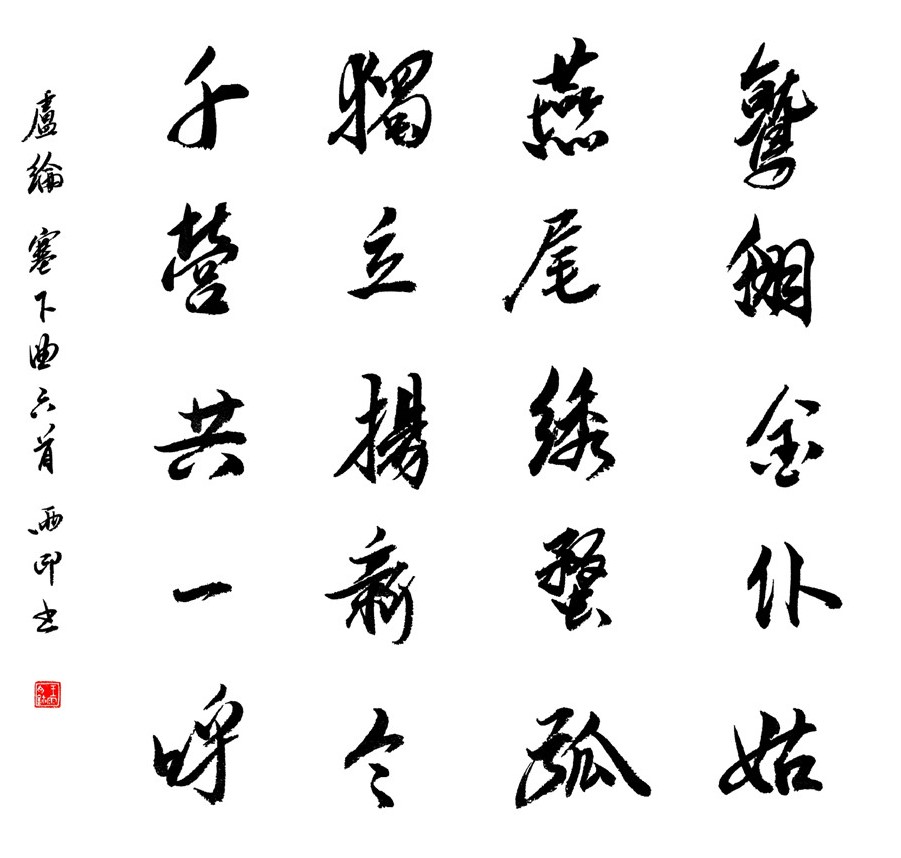 鷲翎金仆姑
燕尾綉蝥弧
獨立揚新令
千營共一呼
盧綸 塞下曲六首 雨印书